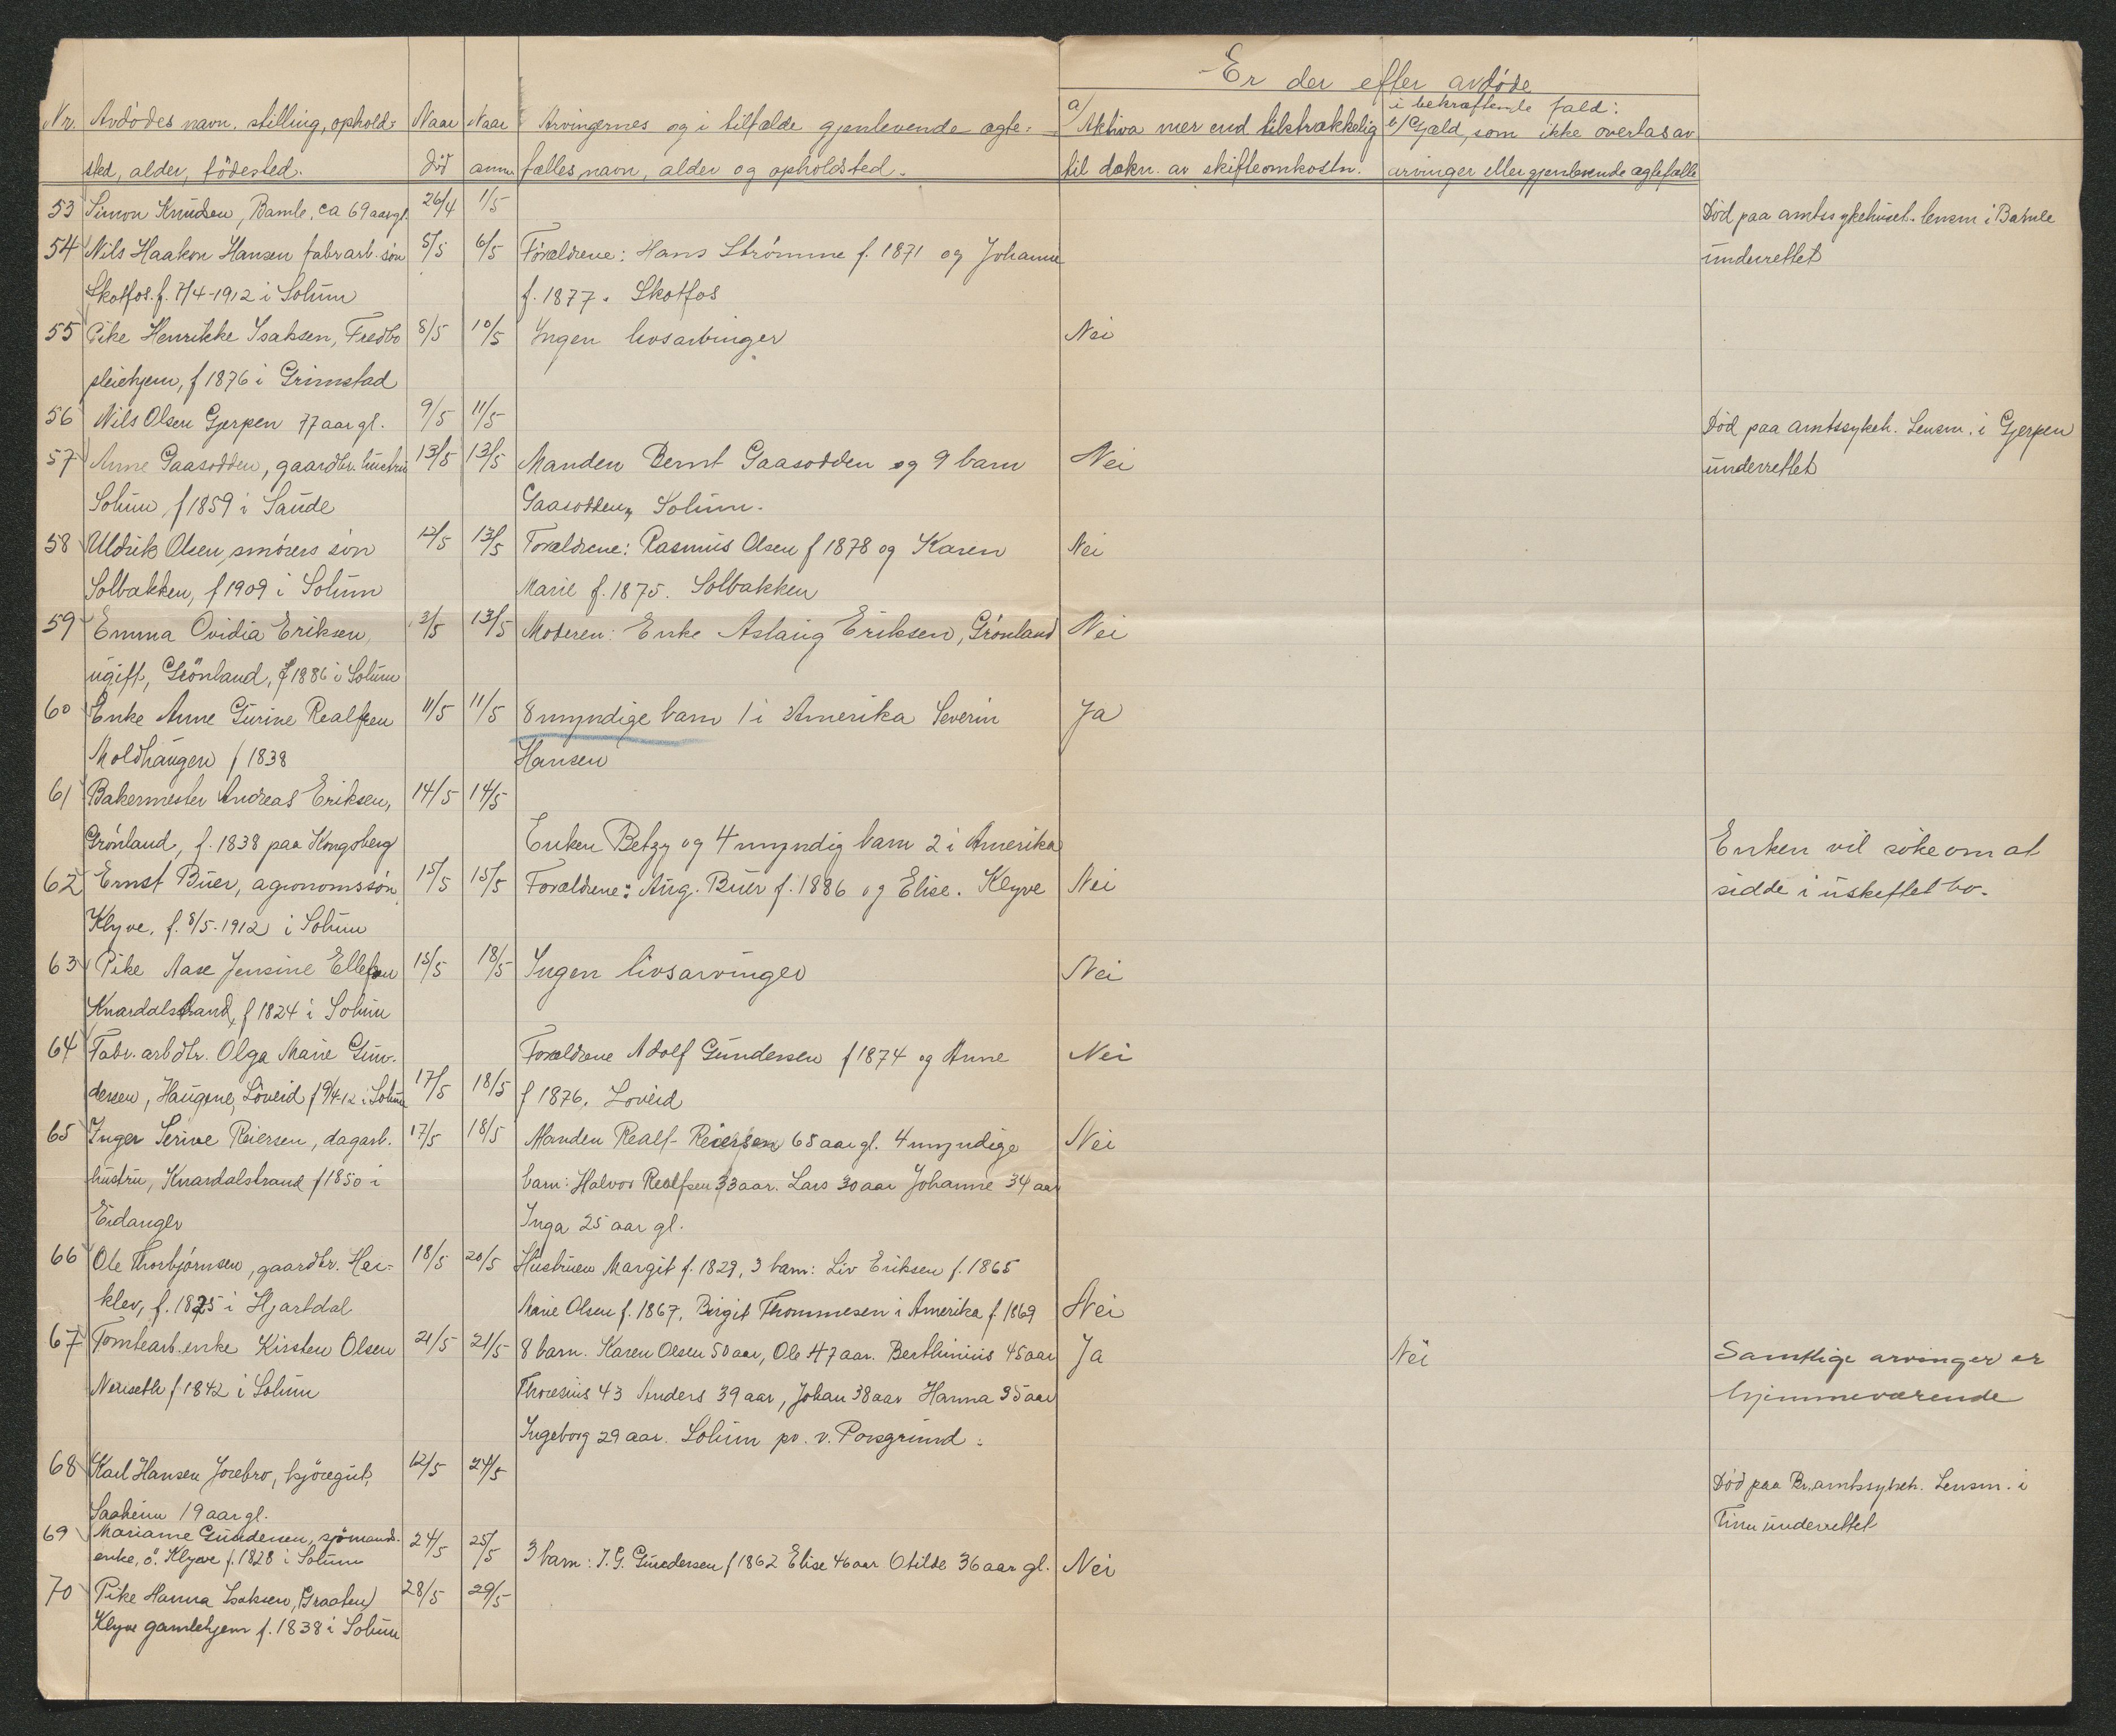 Er der efter avdøde
Nr. Avdødes navn, stilling, ophold- Naar Naar Arvingernes og i tilfælde gjenlevende ægte- a/ Aktiva mer end tilstrækkelig i bekræftende fald: b/ Gjæld, som ikke overtas av
sted, alder, födested. död anm. fælles navn, alder og opholdsted. til dækn. av skifteomkostn. arvinger eller gjenlevende ægtefælle
53 Simon Knudsen, Bamle, ca 69 aar gl. 26/4 1/5 Død paa amtssykehuset. lensm i Bamle
54 Nils Haakon Hansen fabr arb. søn 5/5 6/5 Forældrene: Hans Strømme f. 1871 og Johanne underrettet
Skotfos. f. 7/4-1912 i Solum f. 1877. Skotfos
55 Pike Henrikke Isaksen, Fredbo 8/5 10/5 Ingen livsarvinger Nei
pleiehjem, f 1876 i Grimstad
56 Nils Olsen Gjerpen 77 aar gl. 9/5 11/5 Död paa amtssykeh. Lensm. i Gjerpen
57 Anne Gaasodden, gaardbr. hustru 13/5 13/5 Manden Bernt Gaasodden og 9 barn Nei underrettet
Solum, f 1859 i Saude Gaasodden, Solum.
58 Uldrik Olsen, smörers sön 12/5 13/5 Forældrene: Rasmus Olsen f 1878 og Karen Nei
Solbakken, f 1909 i Solum Marie f. 1875. Solbakken
59 Emma Ovidia Eriksen, 3/5 13/5 Moderen: Enke Aslaug Eriksen, Grönland Nei
ugift, Grönland, f 1886 i Solum
60 Enke Anne Gurine Realfsen 11/5 11/5 8 myndige barn 1 i Amerika Severin Ja
Moldhaugen f 1838 Hansen
61 Bakermester Andreas Eriksen, 14/5 14/5
Grönland, f. 1838 paa Kongsberg Enken Betzy og 4 myndig barn 2 i Amerika Enken vil söke om at
62 Ernst Buer, agronomssön, 15/5 15/5 Forældrene: Aug. Buer f. 1886 og Elise. Klyve Nei sidde i uskiftet bo.
Klyve, f. 8/5-1912 i Solum
63 Pike Aase Jensine Ellefsen 15/5 18/5 Ingen livsarvinger Nei
Knardalstrand, f 1824 i Solum
64 Fabr. arb dtr. Olga Marie Gun- Forældrene Adolf Gundersen f 1874 og Anne Nei
dersen, Haugene, Löveid f 9/4-12 i Solum 17/5 18/5 f 1876. Loveid
65 Inger Serine Reiersen, dagarb. 17/5 18/5 Manden Realf Reiersen 68 aar gl. 4 myndige Nei
hustru, Knardalstrand f 1850 i barn: Halvor Realfsen 33 aar. Lars 30 aar Johanne 34 aar
Eidanger Inga 25 aar gl.
66 Ole Thorbjørnsen, gaardbr. Hei- 18/5 20/5 Hustruen Margit f. 1829, 3 barn: Liv Eriksen f. 1865
klev, f. 1825 i Hjartdal Marie Olsen f. 1867, Birgit Thommesen i Amerika f 1869 Nei
67 Tomtearb. enke Kirsten Olsen 21/5 21/5 8 barn. Karen Olsen 50 aar, Ole 47 aar. Berthinius 45 aar Ja Nei Samtlige arvinger er
Nenseth f 1842 i Solum Thoresius 43 Anders 39 aar, Johan 38 aar Hanna 35 aar hjemmeværende
Ingeborg 29 aar. Solum pr. v. Porsgrund.
68 Karl Hansen Jorebro, kjöregut, 12/5 24/5 Död paa Br. amtssykeh. Lensm. i
Saaheim 19 aar gl. Tinn underrettet
69 Mariane Gundersen, sjömands-
enke, ö. Klyve f. 1828 i Solum 24/5 25/5 3 barn: J. G. Gundersen f 1862 Elise 46 aar Otilde 36 aar gl. Nei
70 Pike Hanna Isaksen, (Graaten) 28/5 29/5
Klyve gamlehjem f. 1838 i Solum